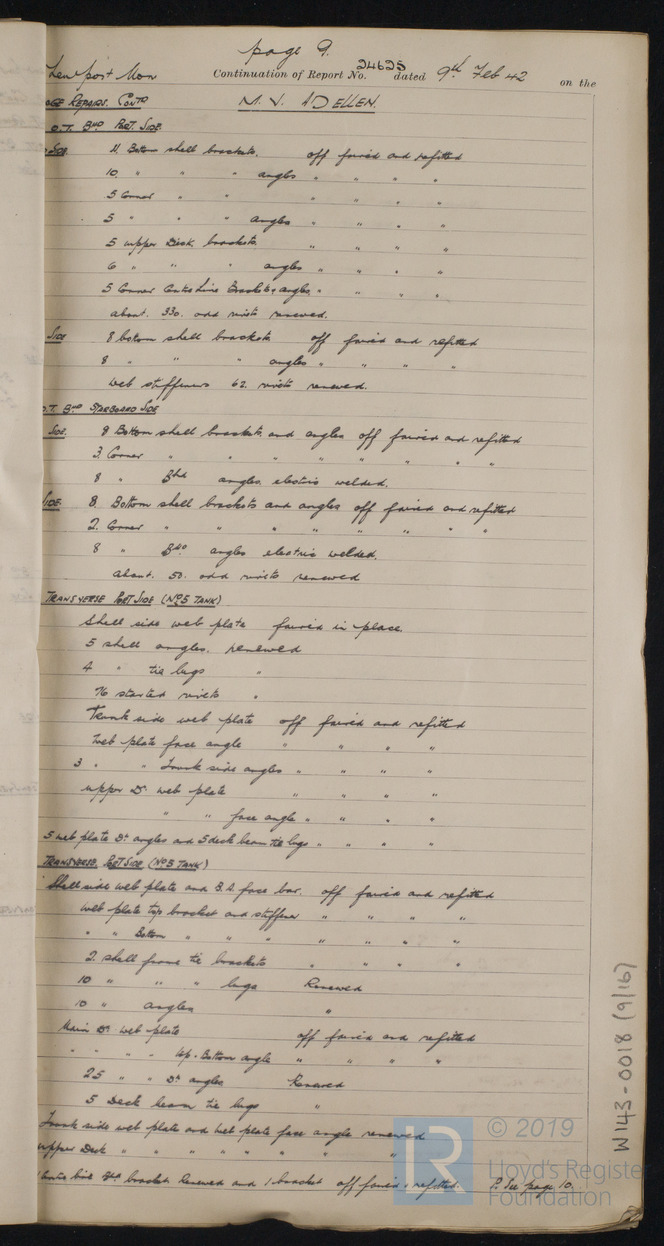 page 9.
Newport Mon Continuation of Report No. 24625 dated 9th Feb 42 on the
AGE REPAIRS. CONTD M.V. ADELLEN.
O.T. BHD PORT SIDE
SIDE 11 Bottom shell brackets. off faired and refitted
10 " " " angles " " " "
5 Corner " " " " " "
5 " " " angles " " " "
5 upper Deck brackets " " " "
6 " " " angles " " " "
5 Corner Centre Line Brackets & angles " " " "
about 330. odd rivets renewed.
SIDE 8 bottom shell brackets off faired and refitted
8 " " " angles " " " "
Web stiffeners 62. rivets renewed.
O.T. BHD STARBOARD SIDE
SIDE. 8 Bottom shell brackets and angles off faired and refitted
3. Corner " " " " " " " "
8 " Bhd angles electric welded.
SIDE 8. Bottom shell brackets and angles off faired and refitted
2. Corner " " " " " " " "
8 " BHD angles electric welded.
about. 50. odd rivets renewed
TRANSVERSE PORT SIDE (No5 TANK)
Shell side web plate faired in place.
5 shell angles. renewed
4 " tie lugs "
76 started rivets "
Trunk side web plate off faired and refitted
Web plate face angle " " " "
3 " " Trunk side angles " " " "
upper Dk web plate " " " "
" " face angle " " " "
5 web plate Dk angles and 5 deck beam tie lugs " " " "
TRANSVERSE PORT SIDE (No5 TANK)
Shell side web plate and B.A. face bar. off faired and refitted
web plate top bracket and stiffener " " " "
" " Bottom " " " " " " "
2. shell frame tie brackets " " " "
10 " " " lugs Renewed
10 " angles "
Main Dk web plate off faired and refitted
" " " " Up. Bottom angle " " " "
25 " " Dk angles Renewed
5 Deck beam tie lugs "
Trunk side web plate and web plate face angle renewed
upper Deck " " " " " " "
Centre line Bhd bracket Renewed and 1. bracket off faired & refitted. P. See page 10.
W143-0018 (9/16)
© 2019
LR
Lloyd's Register
Foundation